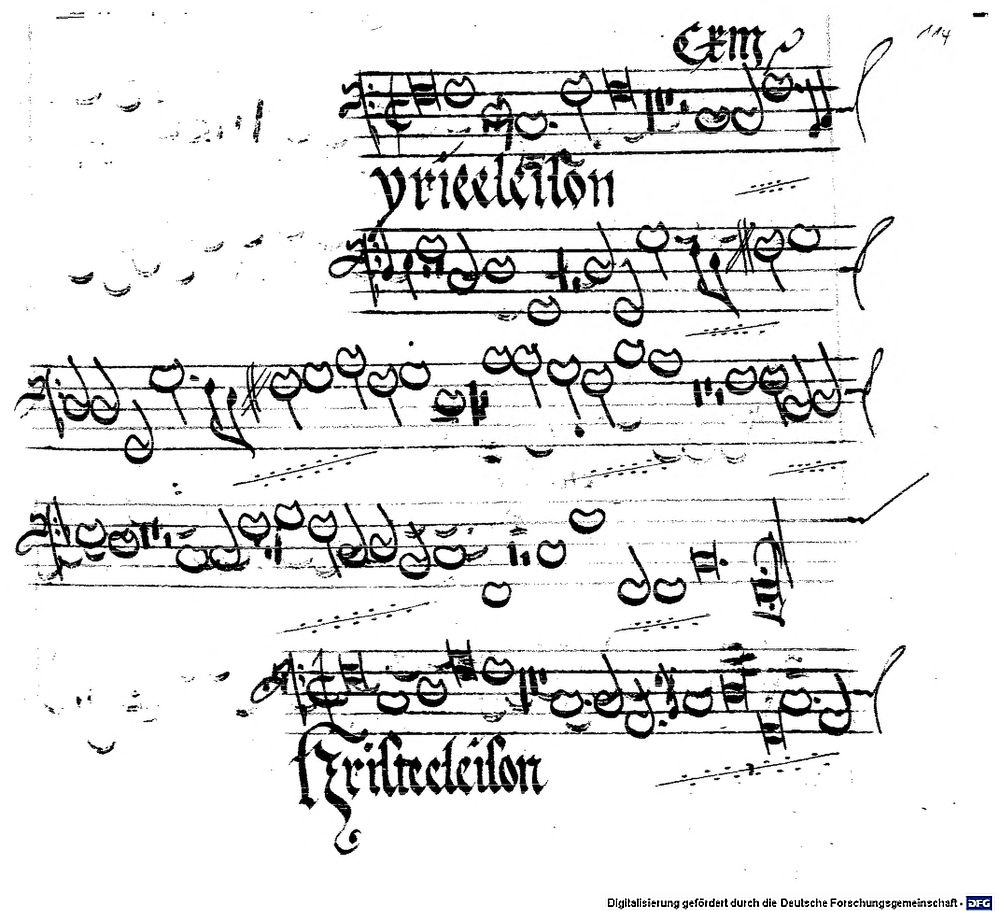 114
yrieeleison
Xpristeeleison
Digitalisierung gefördert durch die Deutsche Forschungsgemeinschaft - DFG